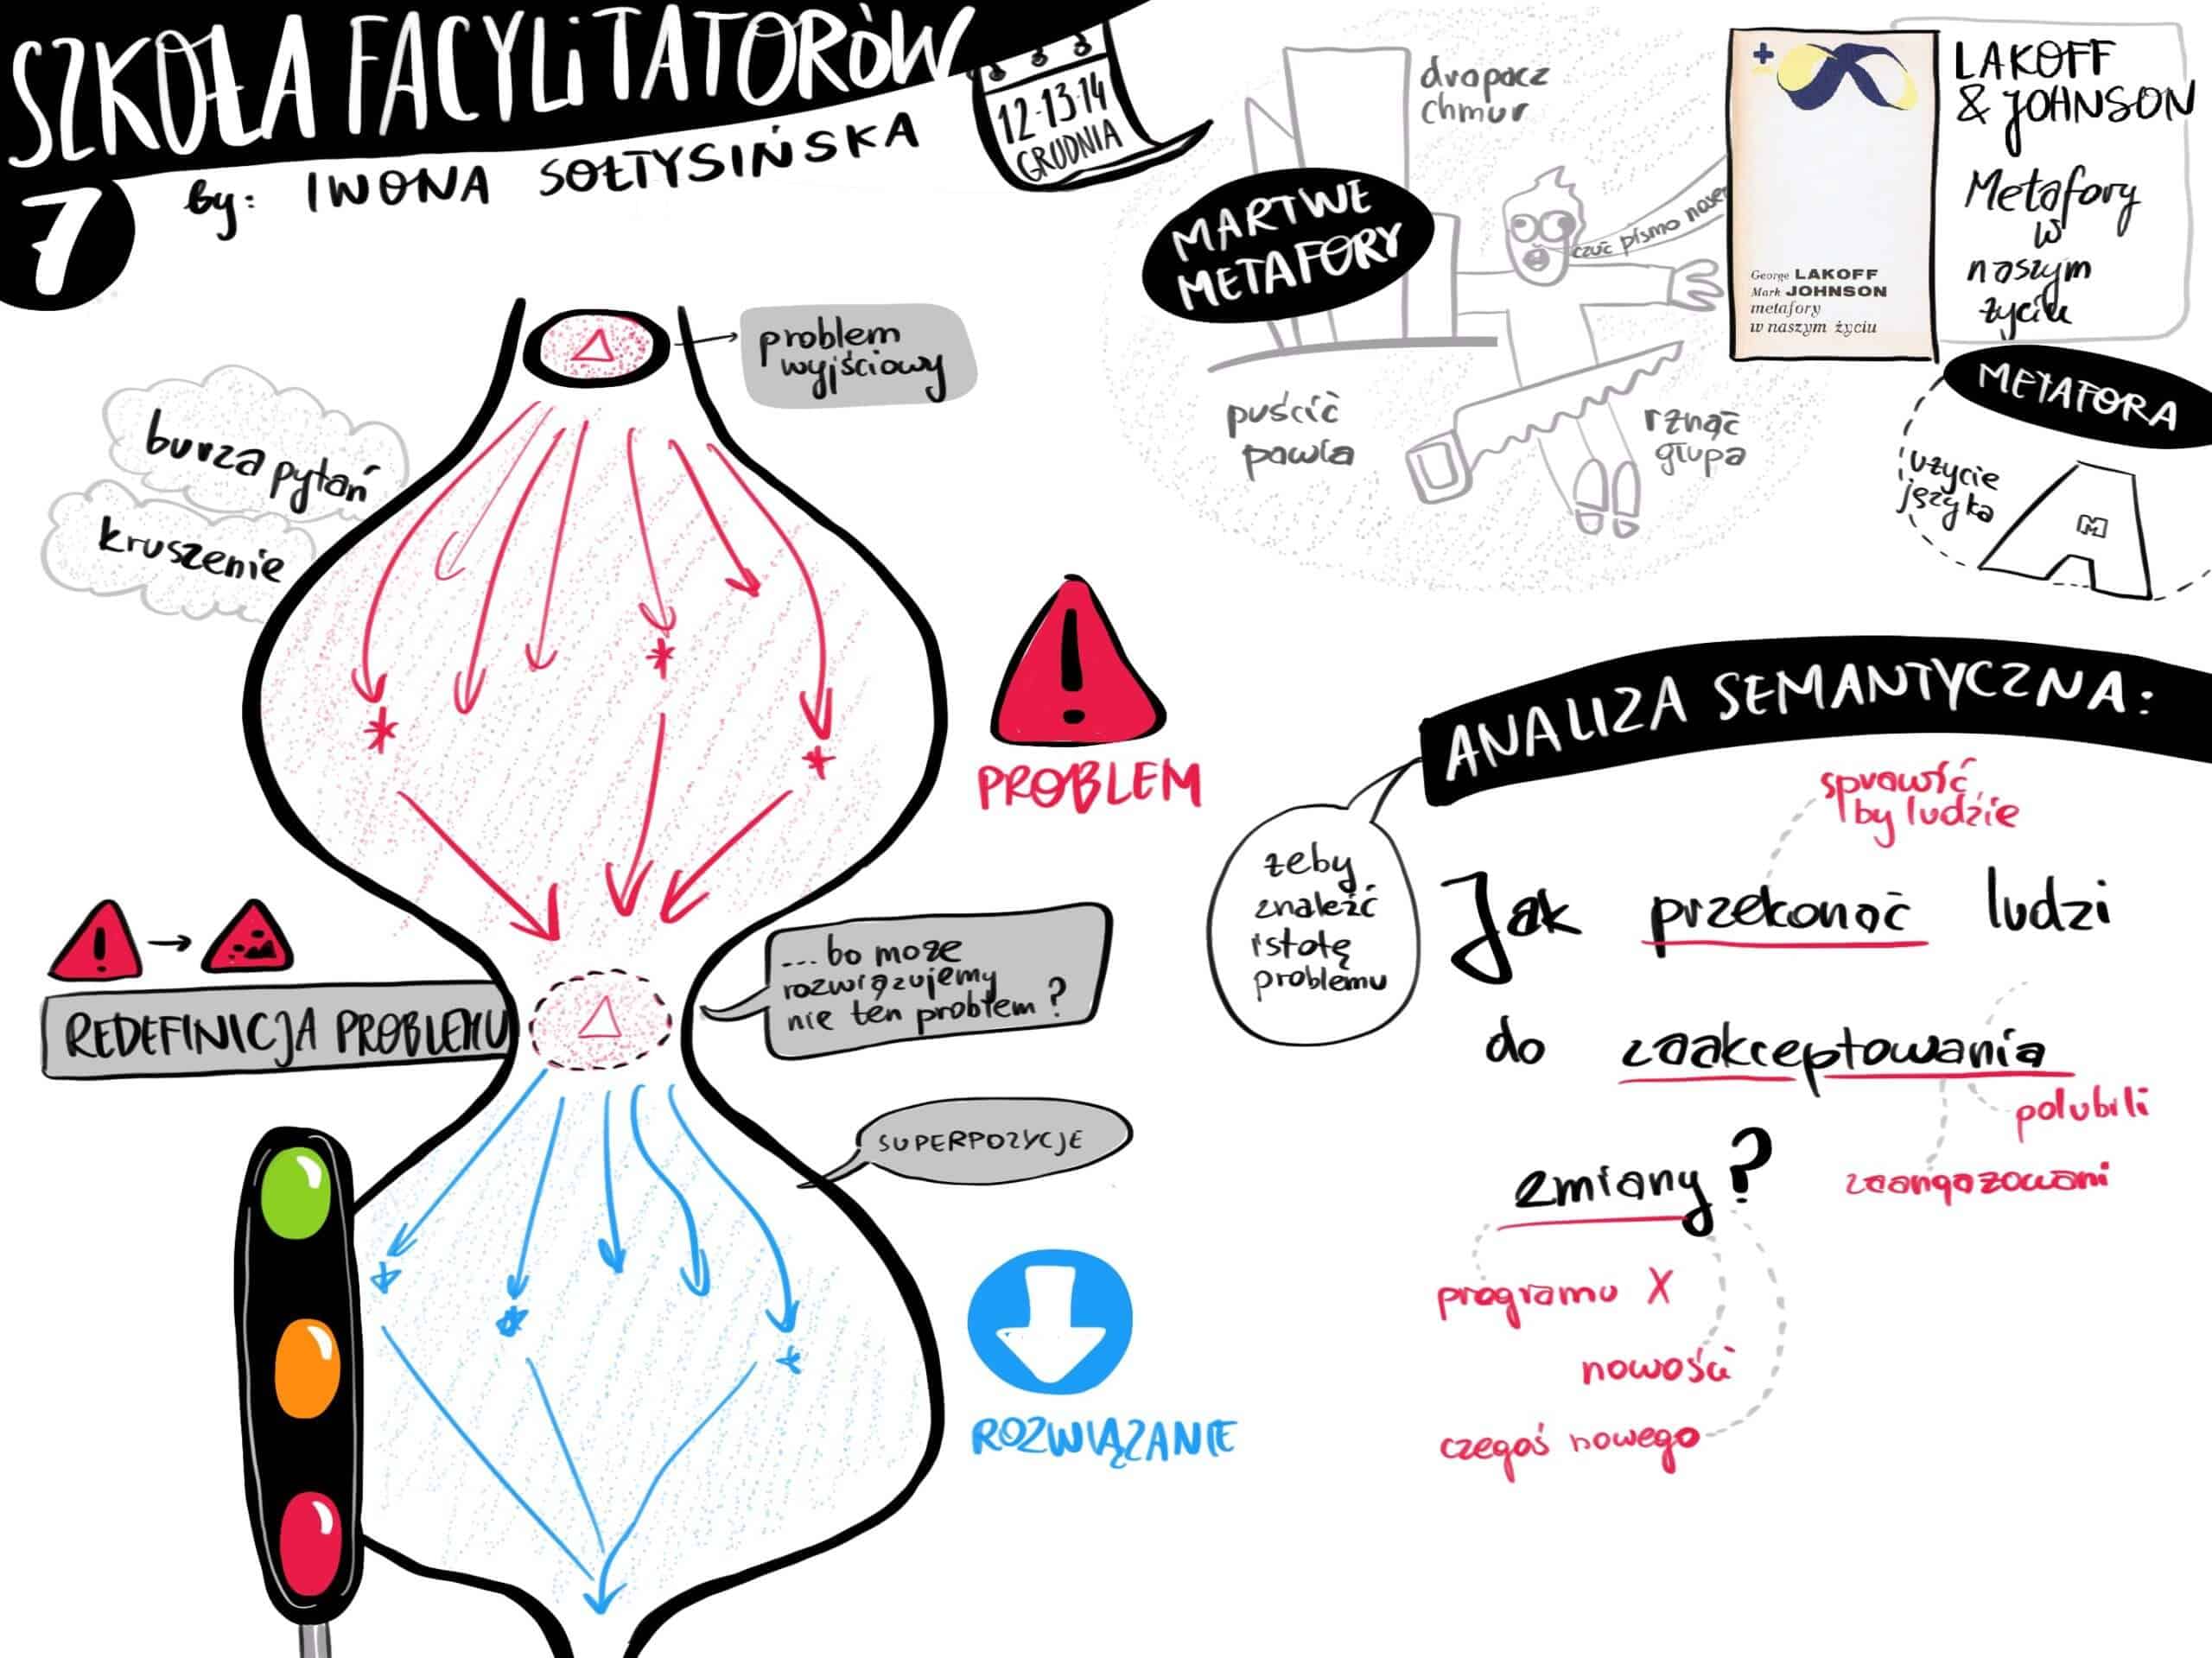 SZKOŁA FACYLITATORÓW
12-13-14
GRUDNIA
7
by: IWONA SOŁTYSIŃSKA
problem
wyjściowy
burza pytań
kruszenie
PROBLEM
REDEFINICJA PROBLEMU
... bo może
rozwiązujemy
nie ten problem?
SUPERPOZYCJE
ROZWIĄZANIE
MARTWE
METAFORY
drapacz
chmur
czuć pismo nosem
puścić
pawia
rżnąć
głupa
George LAKOFF
Mark JOHNSON
metafory
w naszym życiu
LAKOFF
& JOHNSON
Metafory
w
naszym
życiu
METAFORA
użycie
języka
M
ANALIZA SEMANTYCZNA:
żeby
znaleźć
istotę
problemu
sprawić,
by ludzie
Jak przekonać ludzi
do zaakceptowania
polubili
zmiany?
zaangażowani
programu X
nowości
czegoś nowego